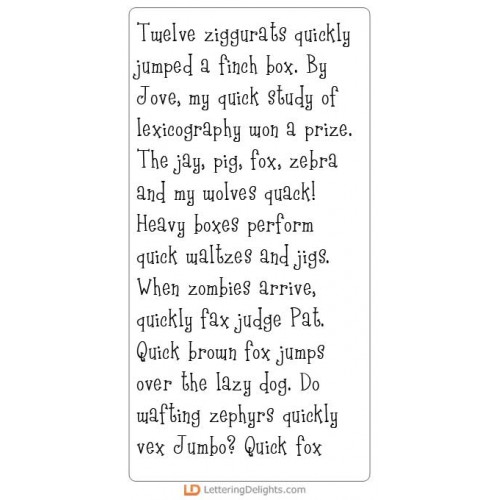 Twelve ziggurats quickly
jumped a finch box. By
Jove, my quick study of
lexicography won a prize.
The jay, pig, fox, zebra
and my wolves quack!
Heavy boxes perform
quick waltzes and jigs.
When zombies arrive,
quickly fax judge Pat.
Quick brown fox jumps
over the lazy dog. Do
wafting zephyrs quickly
vex Jumbo? Quick fox
LD LetteringDelights.com